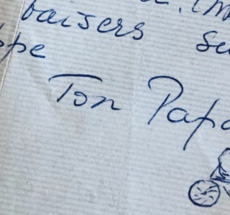 baisers
pe
Ton Papa